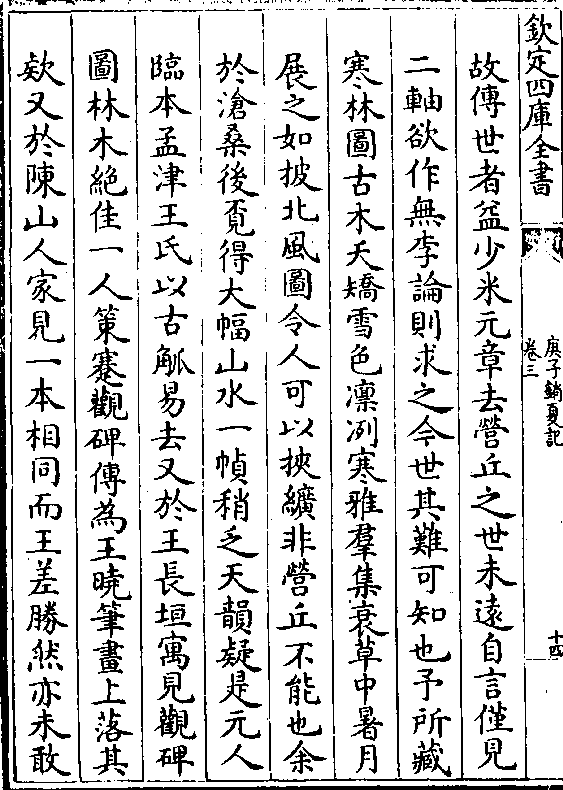 欽定四庫全書
庚子銷夏記
卷三
十四
故傳世者益少米元章去營丘之世未遠自言僅見
二軸欲作無李論則求之今世其難可知也予所藏
寒林圖古木夭矯雪色凛冽寒雅羣集衰草中暑月
展之如披北風圖令人可以挾纊非營丘不能也余
於滄桑後覔得大幅山水一幀稍乏天韻疑是元人
臨本孟津王氏以古觚易去又於王長垣寓見觀碑
圖林木絶佳一人策蹇觀碑傳為王曉筆畫上落其
欵又於陳山人家見一本相同而王差勝然亦未敢